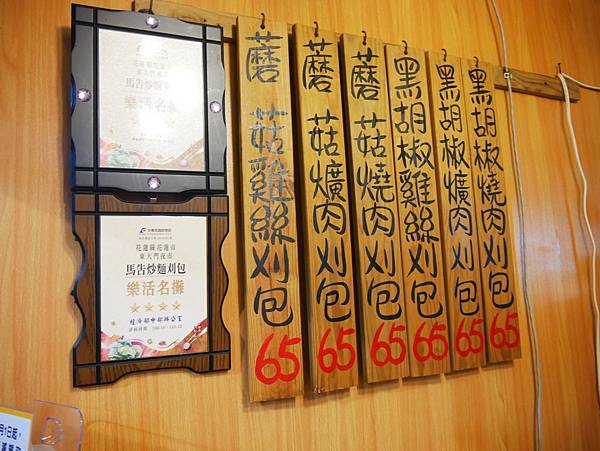 花蓮縣花蓮市
東大門夜市
馬告炒麵刈包
樂活名攤
花蓮縣花蓮市
東大門夜市
馬告炒麵刈包
樂活名攤
經濟部中部辦公室
蘑菇雞絲刈包
65
蘑菇爌肉刈包
65
蘑菇燒肉刈包
65
黑胡椒雞絲刈包
65
黑胡椒爌肉刈包
65
黑胡椒燒肉刈包
65